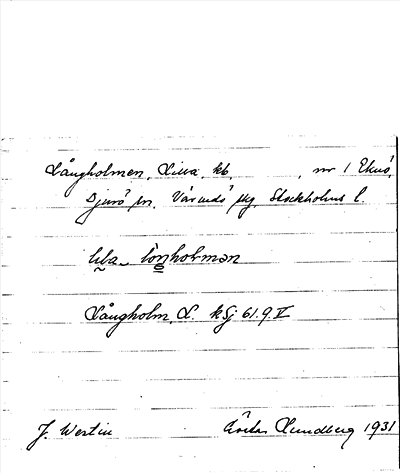 Långholmen, Lilla, kb, , nr 1 Eknö,
Djurö sn. Värmdö skg. Stockholms l.
lıla lòŋholmən
Långholm, L. kSj 61.9.V
J. Westin Gösta Lundberg 1931